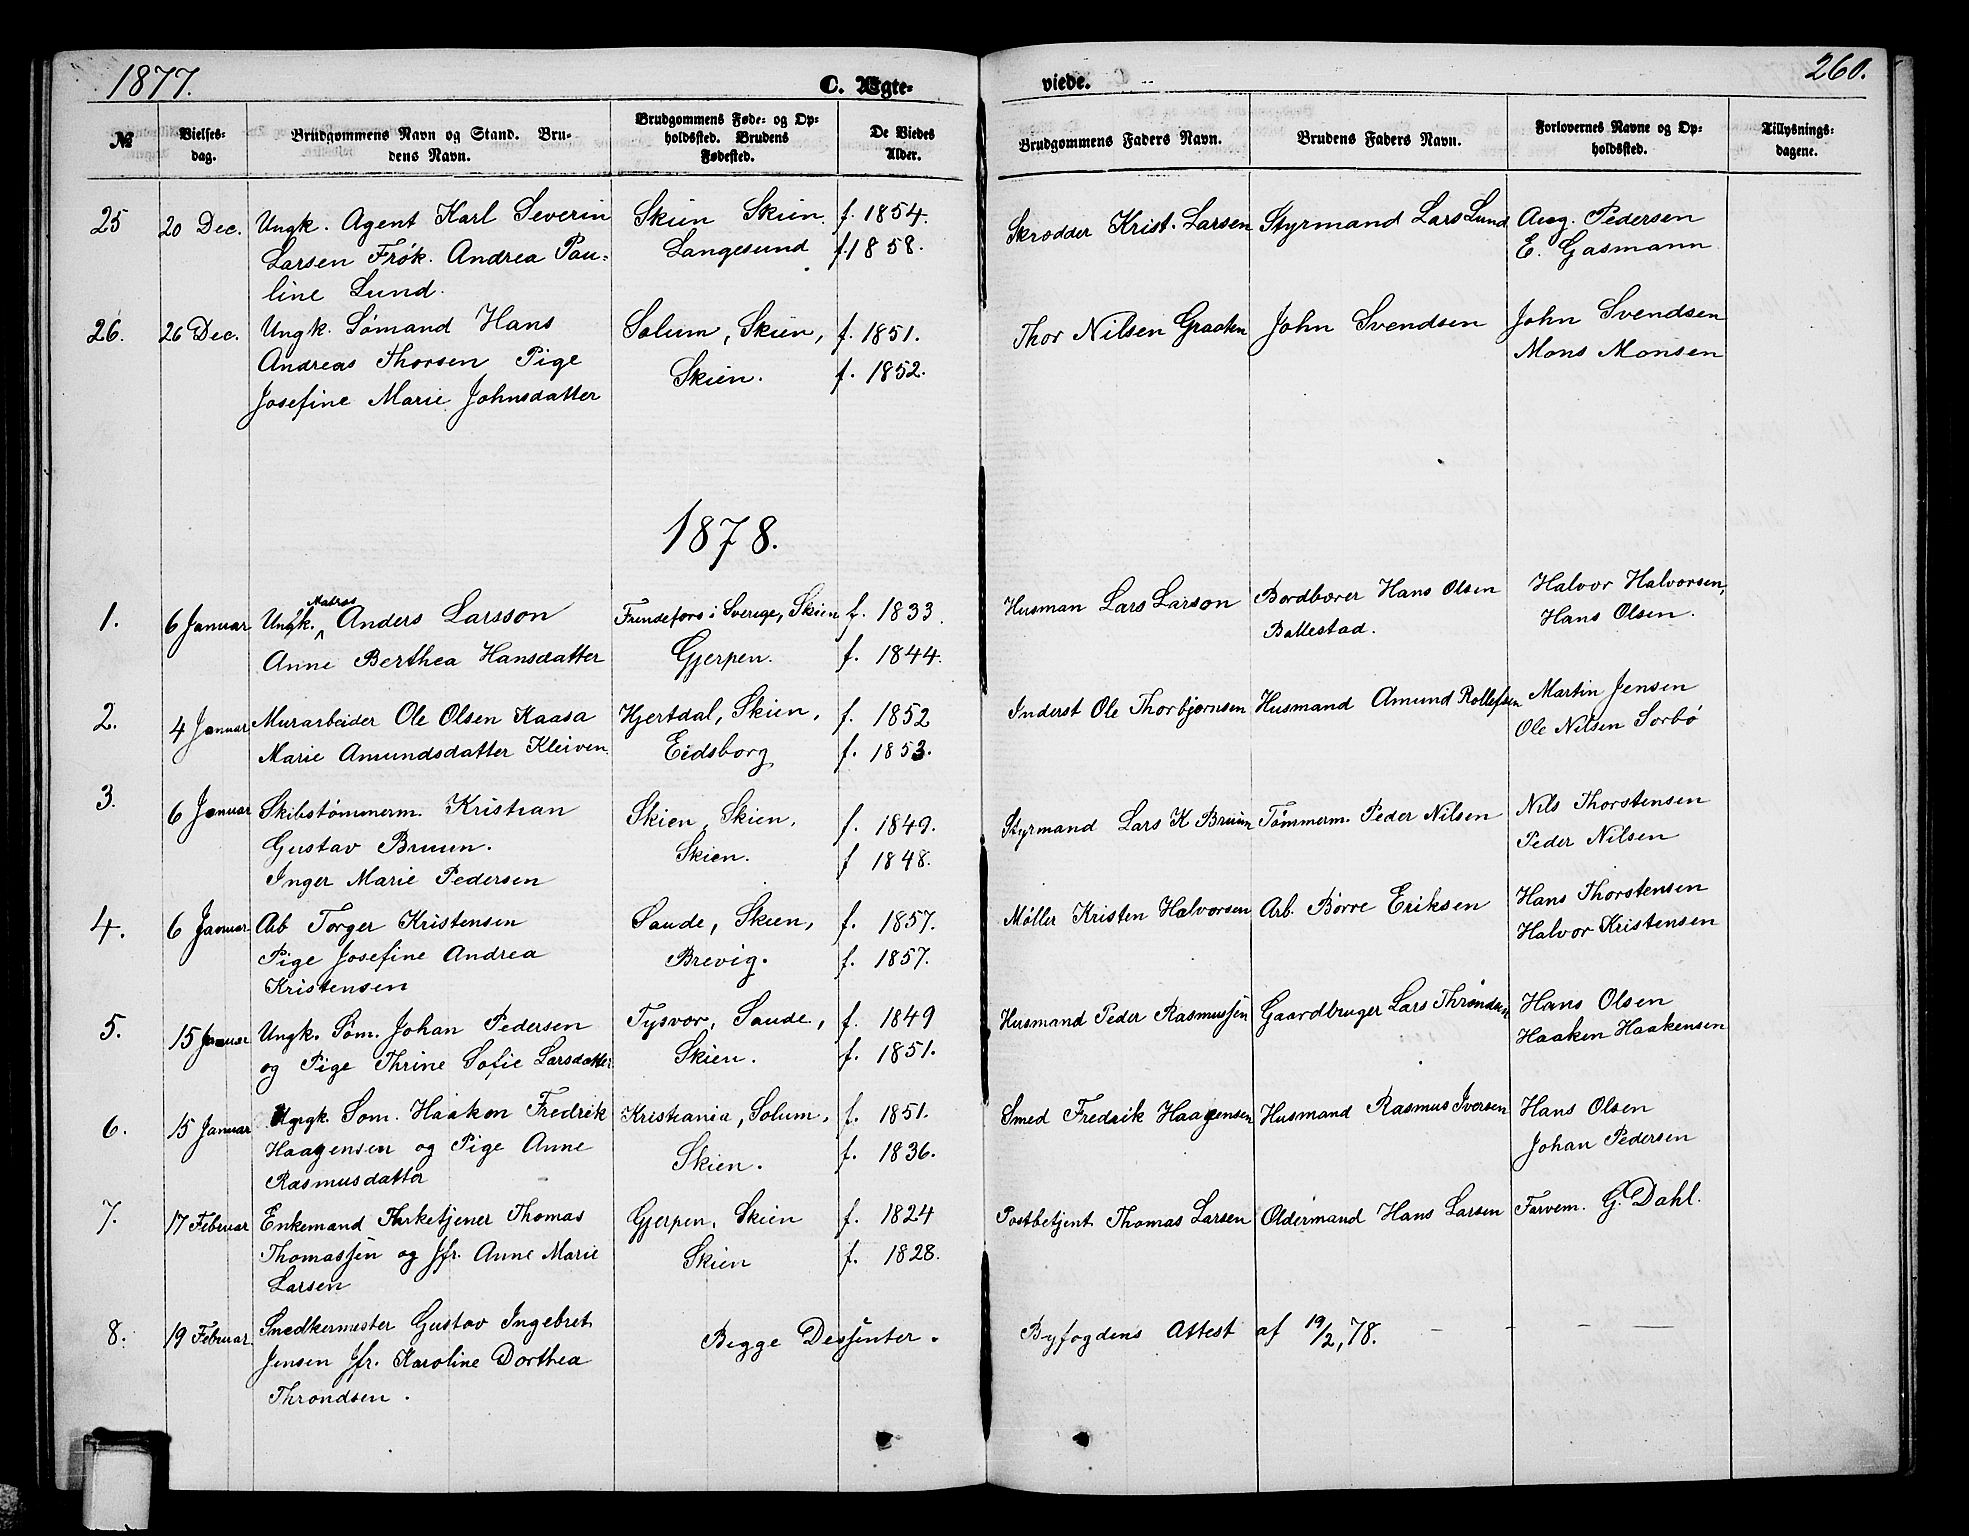 1877.
C. Ægte-
viede.
260.
№
Vielses-
dag.
Brudgommens Navn og Stand. Bru-
dens Navn.
Brudgommens Føde- og Op-
holdssted. Brudens
Fødested.
De Viedes
Alder.
Brudgommens Faders Navn.
Brudens Faders Navn.
Forlovernes Navne og Op-
holdssted.
Tillysnings-
dagene.
25 20 Dec. Ungk. Agent Karl Severin Skien Skien. f. 1854. Skrædder Krist. Larsen Styrmand Lars Lund Aug. Pedersen
Larsen Frøk. Andrea Pau- Langesund f. 1858. E. Gasmann
line Lund.
26. 26 Dec. Ungk. Sømand Hans Solum, Skien, f. 1851. Thor Nilsen Graaten John Svendsen John Svendsen
Andreas Thorsen Pige Skien. f. 1852. Mons Monsen
Josefine Marie Johnsdatter
1878.
1. 6 Januar Ungk. Matros Anders Larsson Frendefors i Sverige, Skien f. 1833. Husman Lars Larson Bordbærer Hans Olsen Halvor Halvorsen,
Anne Berthea Hansdatter Gjerpen. f. 1844. Ballestad. Hans Olsen.
2. 4 Januar Murarbeider Ole Olsen Kaasa Hjertdal, Skien, f. 1852 Inderst Ole Thorbjørnsen Husmand Amund Rollefsen Martin Jensen
Marie Amundsdatter Kleiven Eidsborg f. 1853. Ole Nilsen Sorbø
3. 6 Januar Skibstømmerm. Kristian Skien, Skien, f. 1849. Styrmand Lars K Bruun Tømmerm. Peder Nilsen Nils Thorstensen
Gustav Bruun. Skien. f 1848. Peder Nilsen
Inger Marie Pedersen
4. 6 Januar Arb Torger Kristensen Saude, Skien, f. 1857. Møller Kristen Halvorsen Arb. Børre Eriksen Hans Thorstensen
Pige Josefine Andrea Brevig. f. 1857. Halvor Kristensen
Kristensen
5. 15 Januar Ungk. Søm. Johan Pedersen Tysvær, Saude, f. 1849 Husmand Peder Rasmussen Gaardbruger Lars Throndsen Hans Olsen
og Pige Thrine Sofie Larsdatter Skien. f. 1851. Haaken Haakensen
6. 15 Januar Ungk. Søm. Haakon Fredrik Kristiania, Solum, f. 1851. Smed Fredrik Haagensen Husmand Rasmus Iversen Hans Olsen
Haagensen og Pige Anne Skien. f. 1836. Johan Pedersen
Rasmusdatter
7. 17 Februar Enkemand Kirketjener Thomas Gjerpen, Skien f. 1824 Postbetjent Thomas Larsen Oldermand Hans Larsen Farvem. G. Dahl.
Thomassen og Jfr. Anne Marie Skien f. 1828.
Larsen
8. 19 Februar Snedkermester Gustav Ingebret Begge Dessenter. Byfogdens Attest af 19/2, 78. — — — —
Jensen Jfr. Karoline Dorthea
Throndsen.